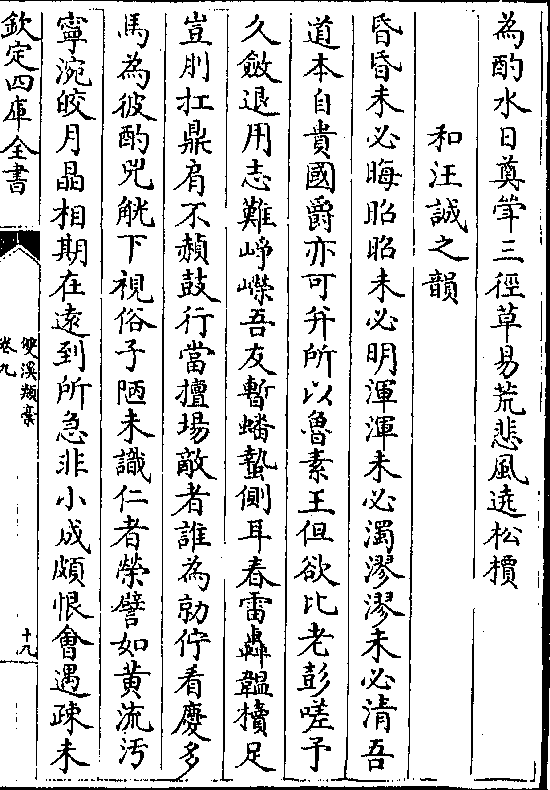 為酌水日奠䇶三徑草易荒悲風遶松檟
和汪誠之韻
昏昏未必晦昭昭未必明渾渾未必濁漻漻未必清吾
道本自貴國爵亦可并所以魯素王但欲比老彭嗟予
久斂退用志難崢嶸吾友暫蟠蟄側耳春雷轟韞櫝足
豈刖扛鼎肩不赬鼓行當擅場敵者誰為勍佇看慶多
馬為彼酌兕觥下視俗子陋未識仁者榮譬如黄流汚
寧涴皎月晶相期在遠到所急非小成頗恨會遇疎未
欽定四庫全書
雙溪類稾
卷九
十九